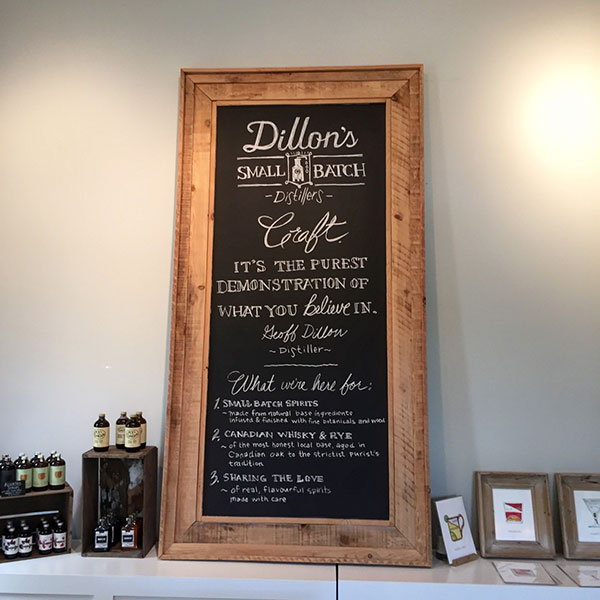 Dillon's
SMALL BATCH
-Distillers-
Craft.
IT'S THE PUREST
DEMONSTRATION OF
WHAT YOU Believe IN.
Geoff Dillon
~Distiller~
What we're here for:
1. SMALL BATCH SPIRITS
~made from natural base ingredients
infused & finished with fine botanicals and wood
2. CANADIAN WHISKY & RYE
~ of the most honest local base, aged in
Canadian oak to the strictist purist's
tradition
3. SHARING THE LOVE
~ of real, flavourful spirits
made with care